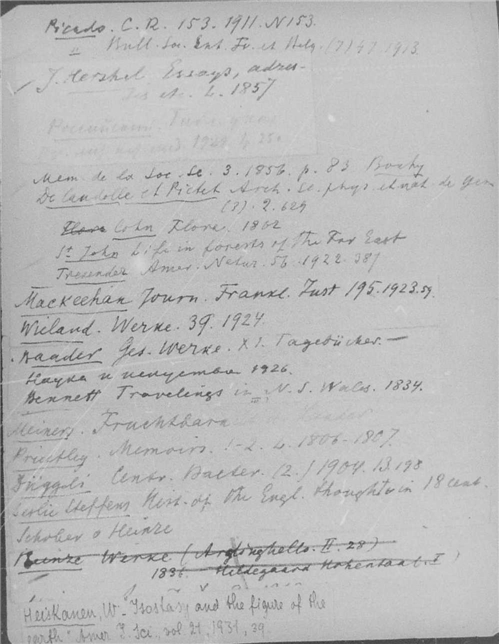 Picado. C. R. 153. 1911. N 153.
" Bull. Soc. Ent. Fr. et Belg. (7) 47. 1913
J. Hershel. Essays, adres-
ses etc. L. 1857
Mem. de la Soc. Sc. 3. 1856. p. 83
De Candolle et Pictet Arch. Sc. phys. et nat. de Gen
(3). 2. 629
Cohn Flora. 1862
St John Life in forests of the Far East
Amer. Natur. 56. 1922. 387
Mackeehan Journ. Frankl. Inst 195. 1923. 59.
Wieland. Werke. 39. 1924.
Baader Ges. Werke. XI. Tagebücher. —
Наука и 1926.
Bennett Travelings in N. S. Wales. 1834.
Meiners. Fruchtbark
Priestley. Memoirs. 1-2. L. 1806-1807.
Düggeli Centr. Bacter. (2.) 1904. 13. 198
Leslie Steffens Hist. of the Engl. thoughts in 18 cent.
Schober о Heinze
Heinze Werke (Ardinghello. II. 28)
183 Hildegaard Hohental. I
Heiskanen, W. Isostasy and the figure of the
earth. Amer. J. Sci, vol. 21, 1931, 39.